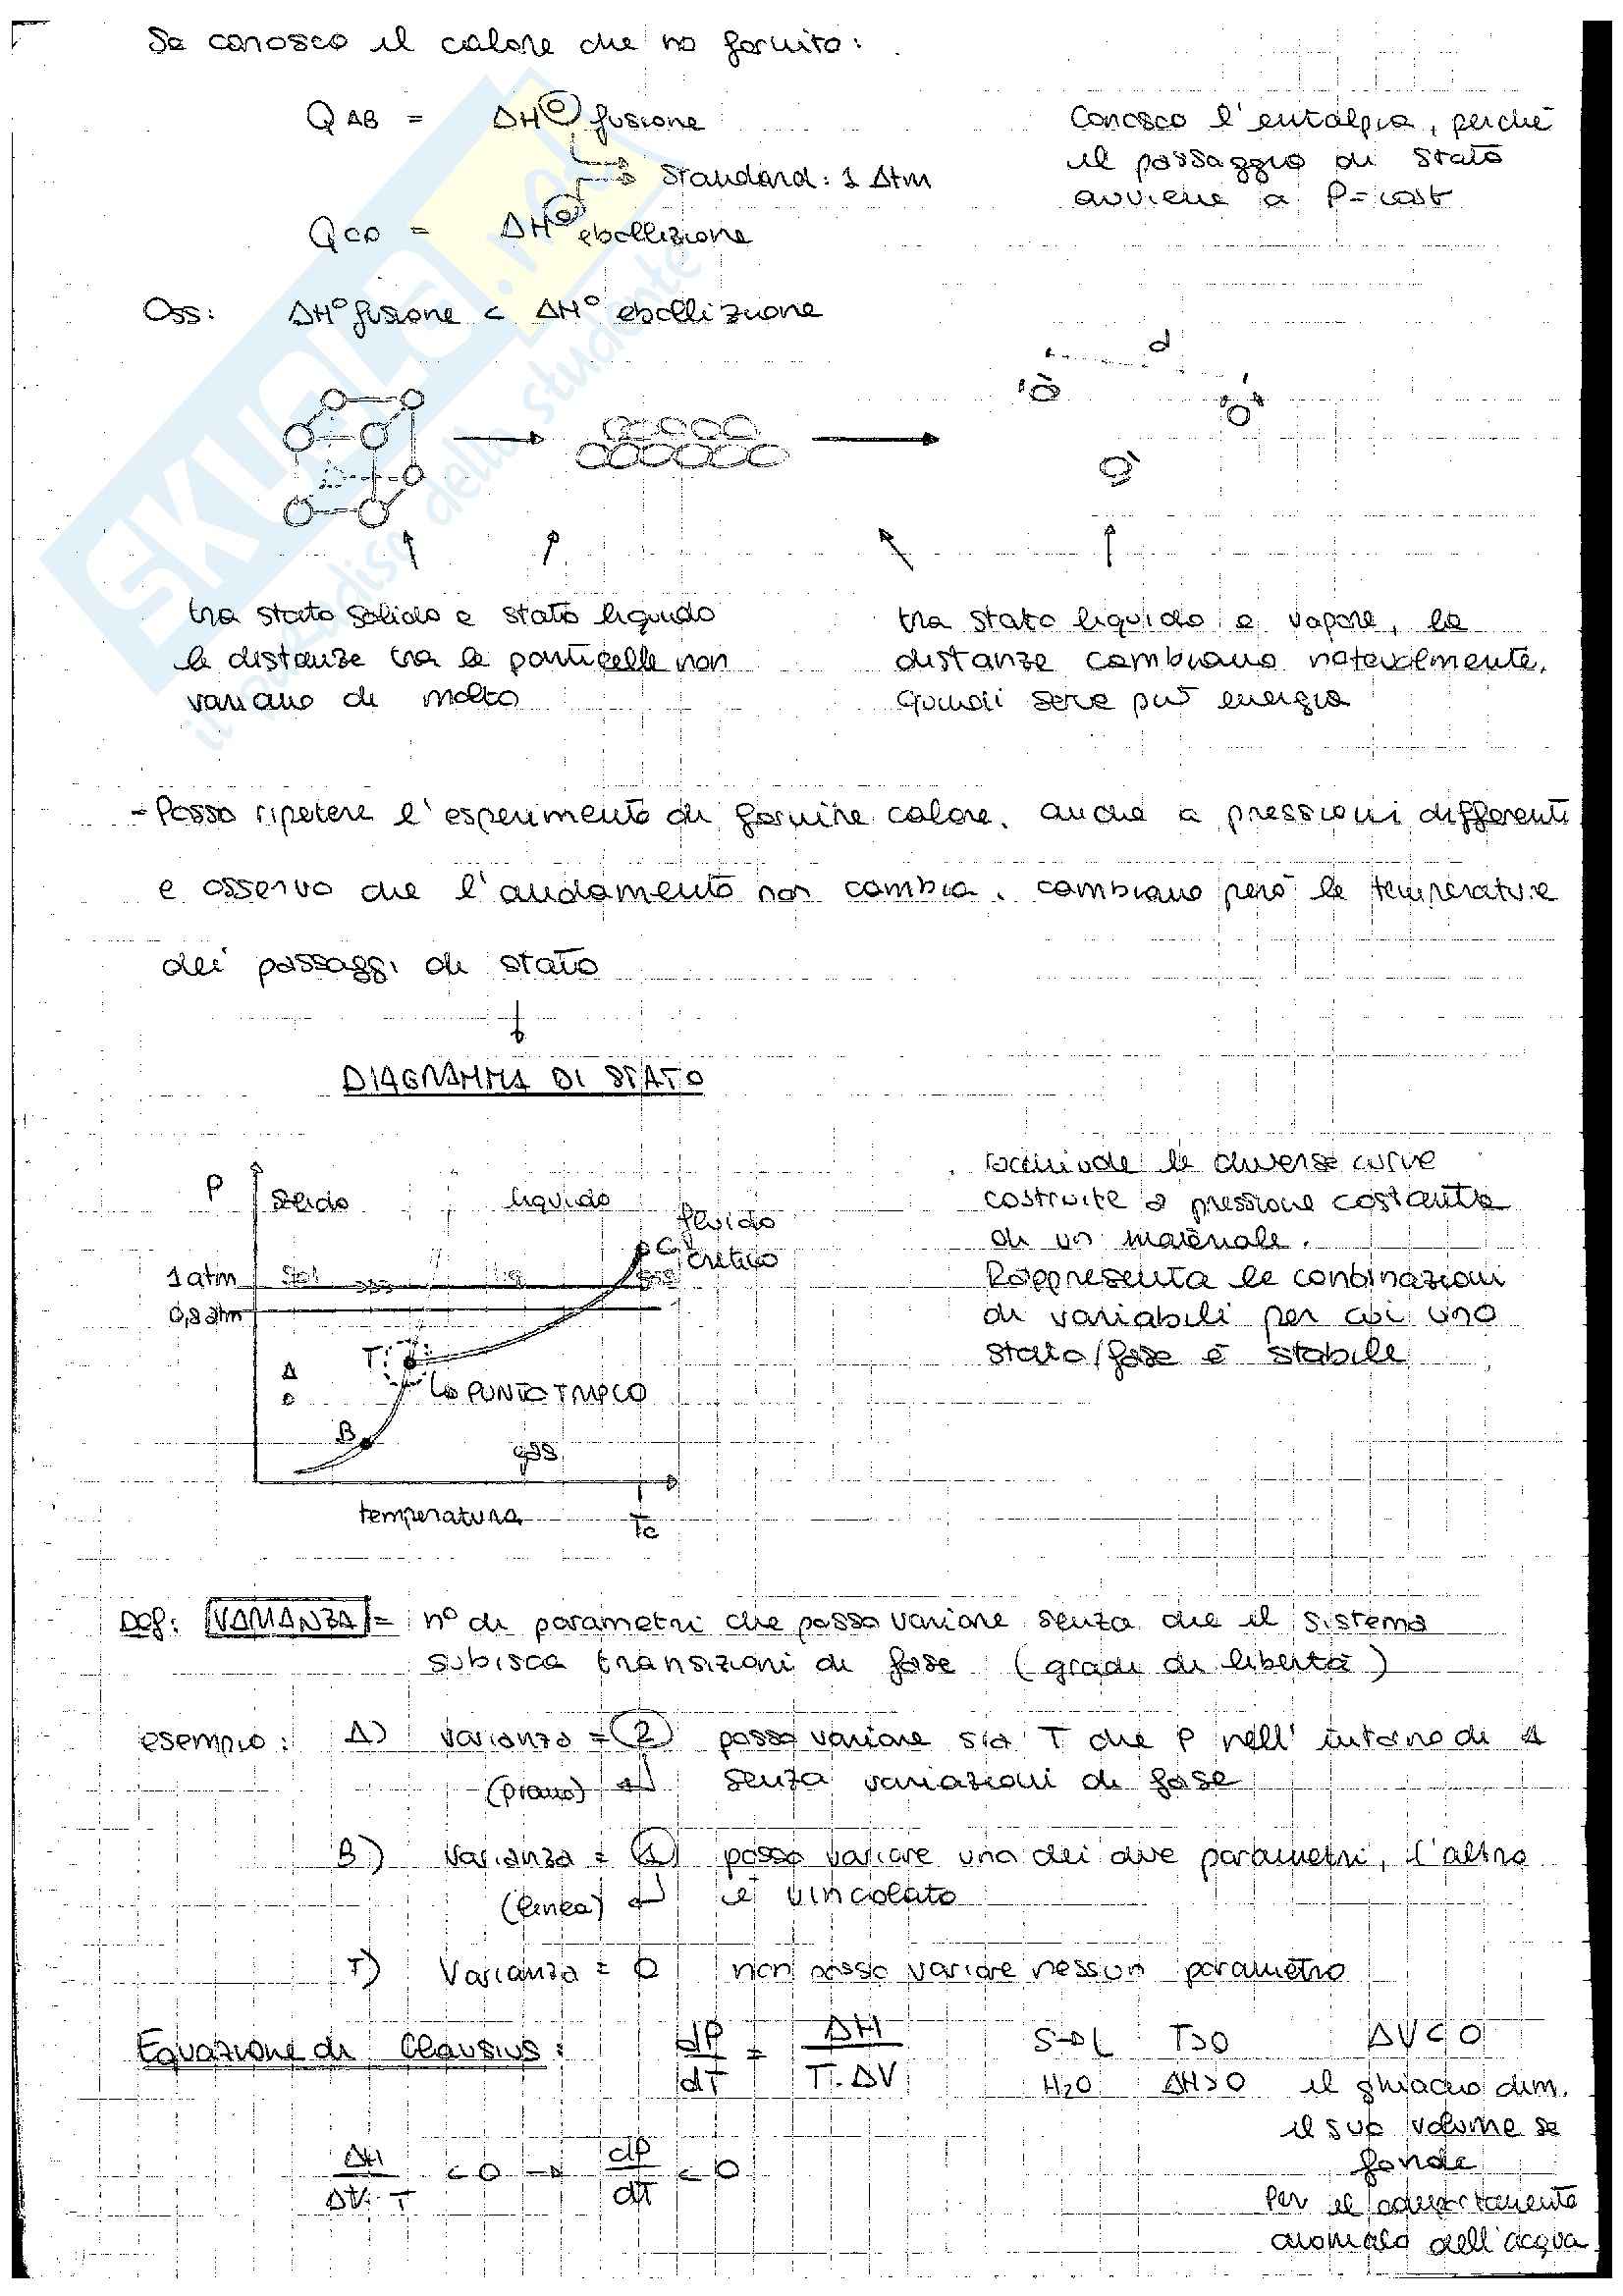 Se conosco il calore che ho fornito:
Q AB = ΔH° fusione
Standard: 1 Atm
Q CD = ΔH° ebollizione
Conosco l'entalpia, perchè
il passaggio di stato
avviene a P=cost
Oss: ΔH° fusione < ΔH° ebollizione
d
tra stato solido e stato liquido
le distanze tra le particelle non
variano di molto
tra stato liquido e vapore, le
distanze cambiano notevolmente,
quindi serve più energia
- Posso ripetere l'esperimento di fornire calore, anche a pressioni differenti
e osservo che l'andamento non cambia, cambiano però le temperature
dei passaggi di stato
DIAGRAMMA DI STATO
P
solido
liquido
fluido
critico
1 atm
sol
liq
gas
0,8 atm
T
A
PUNTO TRIPLO
B
gas
temperatura
Tc
racchiude le diverse curve
costruite a pressione costante
di un materiale.
Rappresenta le combinazioni
di variabili per cui uno
stato/fase è stabile
Def: VARIANZA = n° di parametri che posso variare senza che il sistema
subisca transizioni di fase (gradi di libertà)
esempio: A) varianza = 2 posso variare sia T che P nell'intorno di A
(piano) senza variazioni di fase
B) varianza = 1 posso variare uno dei due parametri, l'altro
(linea) è vincolato
T) Varianza = 0 non posso variare nessun parametro
Equazione di Clausius: dP/dT = ΔH/T·ΔV S→L T>0 ΔV<0
H2O ΔH>0 il ghiaccio dim.
il suo volume se
fonde
ΔH/ΔV·T <0 → dP/dT <0
Per il comportamento
anomalo dell'acqua
SKUOLA.net
il paradiso dello studente